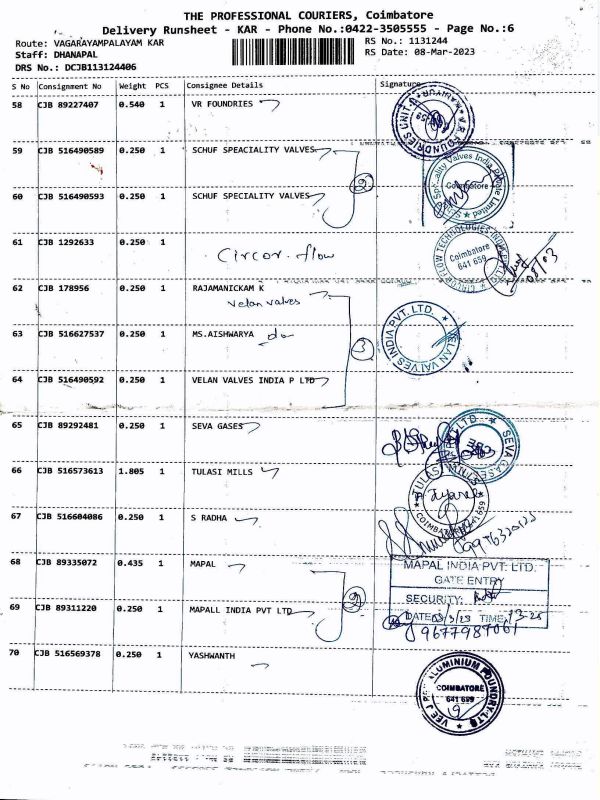 THE PROFESSIONAL COURIERS, Coimbatore
Delivery Runsheet - KAR - Phone No.:0422-3505555 - Page No.:6
Route: VAGARAYAMPALAYAM KAR
RS No.: 1131244
Staff: DHANAPAL
RS Date: 08-Mar-2023
DRS No.: DCJB113124406
S No Consignment No Weight PCS Consignee Details Signature
58 CJB 89227407 0.540 1 VR FOUNDRIES
59 CJB 516490589 0.250 1 SCHUF SPEACIALITY VALVES
2
60 CJB 516490593 0.250 1 SCHUF SPECIALITY VALVES
Coimbatore
61 CJB 1292633 0.250 1
Circor. flow
CIRCOR FLOW TECHNOLOGIES INDIA
Coimbatore
641 659
62 CJB 178956 0.250 1 RAJAMANICKAM K
velan valves
63 CJB 516627537 0.250 1 MS.AISHWARYA do
3
VELAN VALVES INDIA PVT. LTD.
64 CJB 516490592 0.250 1 VELAN VALVES INDIA P LTD
65 CJB 89292481 0.250 1 SEVA GASES
SEVA GASES
66 CJB 516573613 1.805 1 TULASI MILLS
TULASI MILLS
COIMBATORE
67 CJB 516604086 0.250 1 S RADHA
68 CJB 89335072 0.435 1 MAPAL
MAPAL INDIA PVT. LTD.
GATE ENTRY
SECURITY:
2
69 CJB 89311220 0.250 1 MAPALL INDIA PVT LTD
DATE: 08/3/23 TIME: 13-25
9677987061
70 CJB 516569378 0.250 1 YASHWANTH
ALUMINIUM FOUNDRY
COIMBATORE
641 659